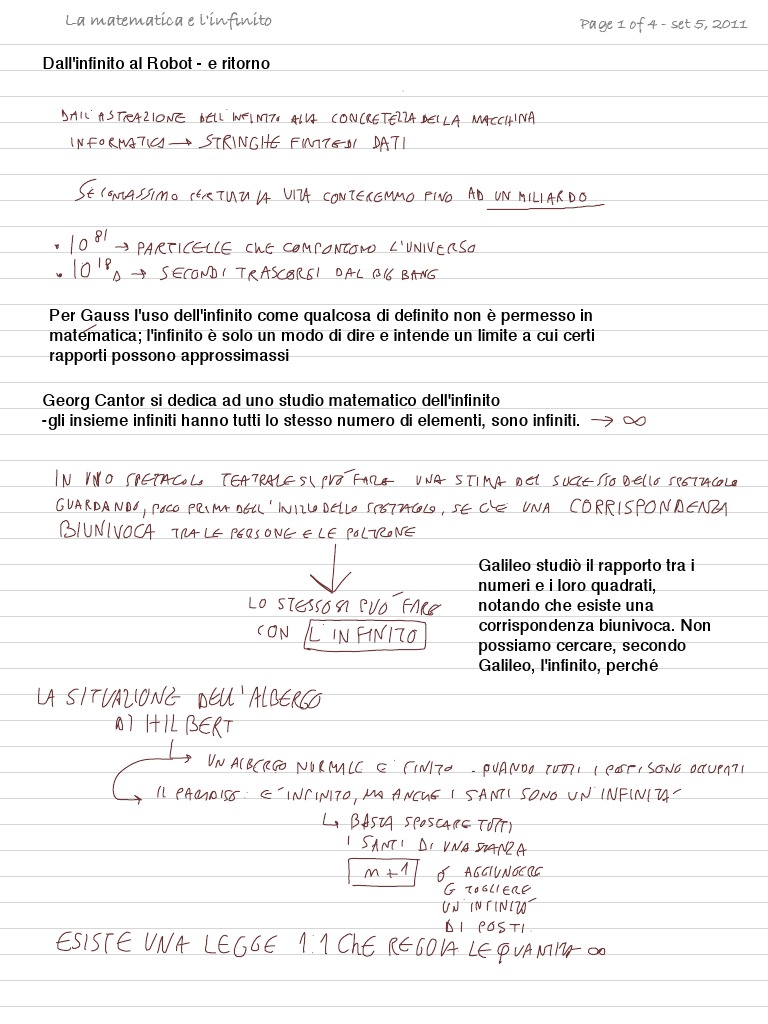 La matematica e l'infinito
Page 1 of 4 - set 5, 2011
Dall'infinito al Robot - e ritorno
DALL'ASTRAZIONE DELL'INFINITO ALLA CONCRETEZZA DELLA MACCHINA
INFORMATICA → STRINGHE FINITE DI DATI
SE CONTASSIMO PER TUTTA LA VITA CONTEREMMO FINO AD UN MILIARDO
• 10^81 → PARTICELLE CHE COMPONGONO L'UNIVERSO
• 10^18 s → SECONDI TRASCORSI DAL BIG BANG
Per Gauss l'uso dell'infinito come qualcosa di definito non è permesso in
matematica; l'infinito è solo un modo di dire e intende un limite a cui certi
rapporti possono approssimassi
Georg Cantor si dedica ad uno studio matematico dell'infinito
-gli insieme infiniti hanno tutti lo stesso numero di elementi, sono infiniti. → ∞
IN UNO SPETACOLO TEATRALE SI PUÒ FARE UNA STIMA DEL SUCCESSO DELLO SPETTACOLO
GUARDANDO, POCO PRIMA DELL'INIZIO DELLO SPETTACOLO, SE C'È UNA CORRISPONDENZA
BIUNIVOCA TRA LE PERSONE E LE POLTRONE
LO STESSO SI PUÒ FARE
CON L'INFINITO
Galileo studiò il rapporto tra i
numeri e i loro quadrati,
notando che esiste una
corrispondenza biunivoca. Non
possiamo cercare, secondo
Galileo, l'infinito, perché
LA SITUAZIONE DELL'ALBERGO
DI HILBERT
UN ALBERGO NORMALE È FINITO - QUANDO TUTTI I POSTI SONO OCCUPATI
IL PARADISO: È INFINITO, MA ANCHE I SANTI SONO UN'INFINITÀ
↳ BASTA SPOSCARE TUTTI
I SANTI DI UNA STANZA
n+1 O AGGIUNGERE
O TOGLIERE
UN'INFINITÀ
DI POSTI
ESISTE UNA LEGGE 1:1 CHE REGOLA LE QUANTITÀ ∞